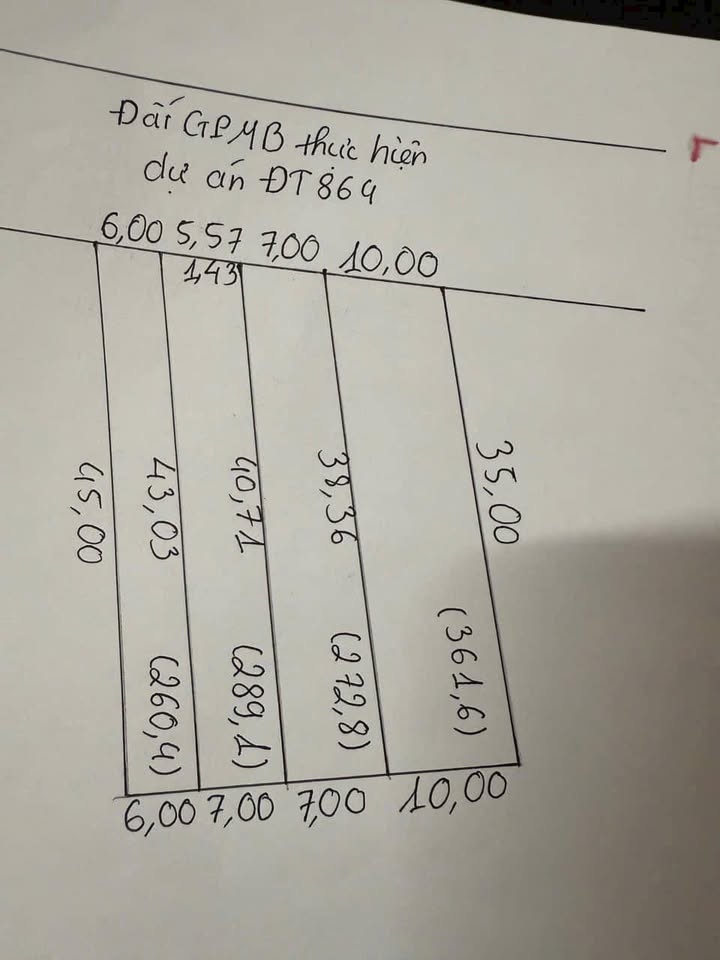 Đất GPMB thực hiện
dự án ĐT 864
6,00 5,57 7,00 10,00
1,43
45,00
43,03
40,71
38,36
35,00
(260,4)
(289,1)
(272,8)
(361,6)
6,00 7,00 7,00 10,00